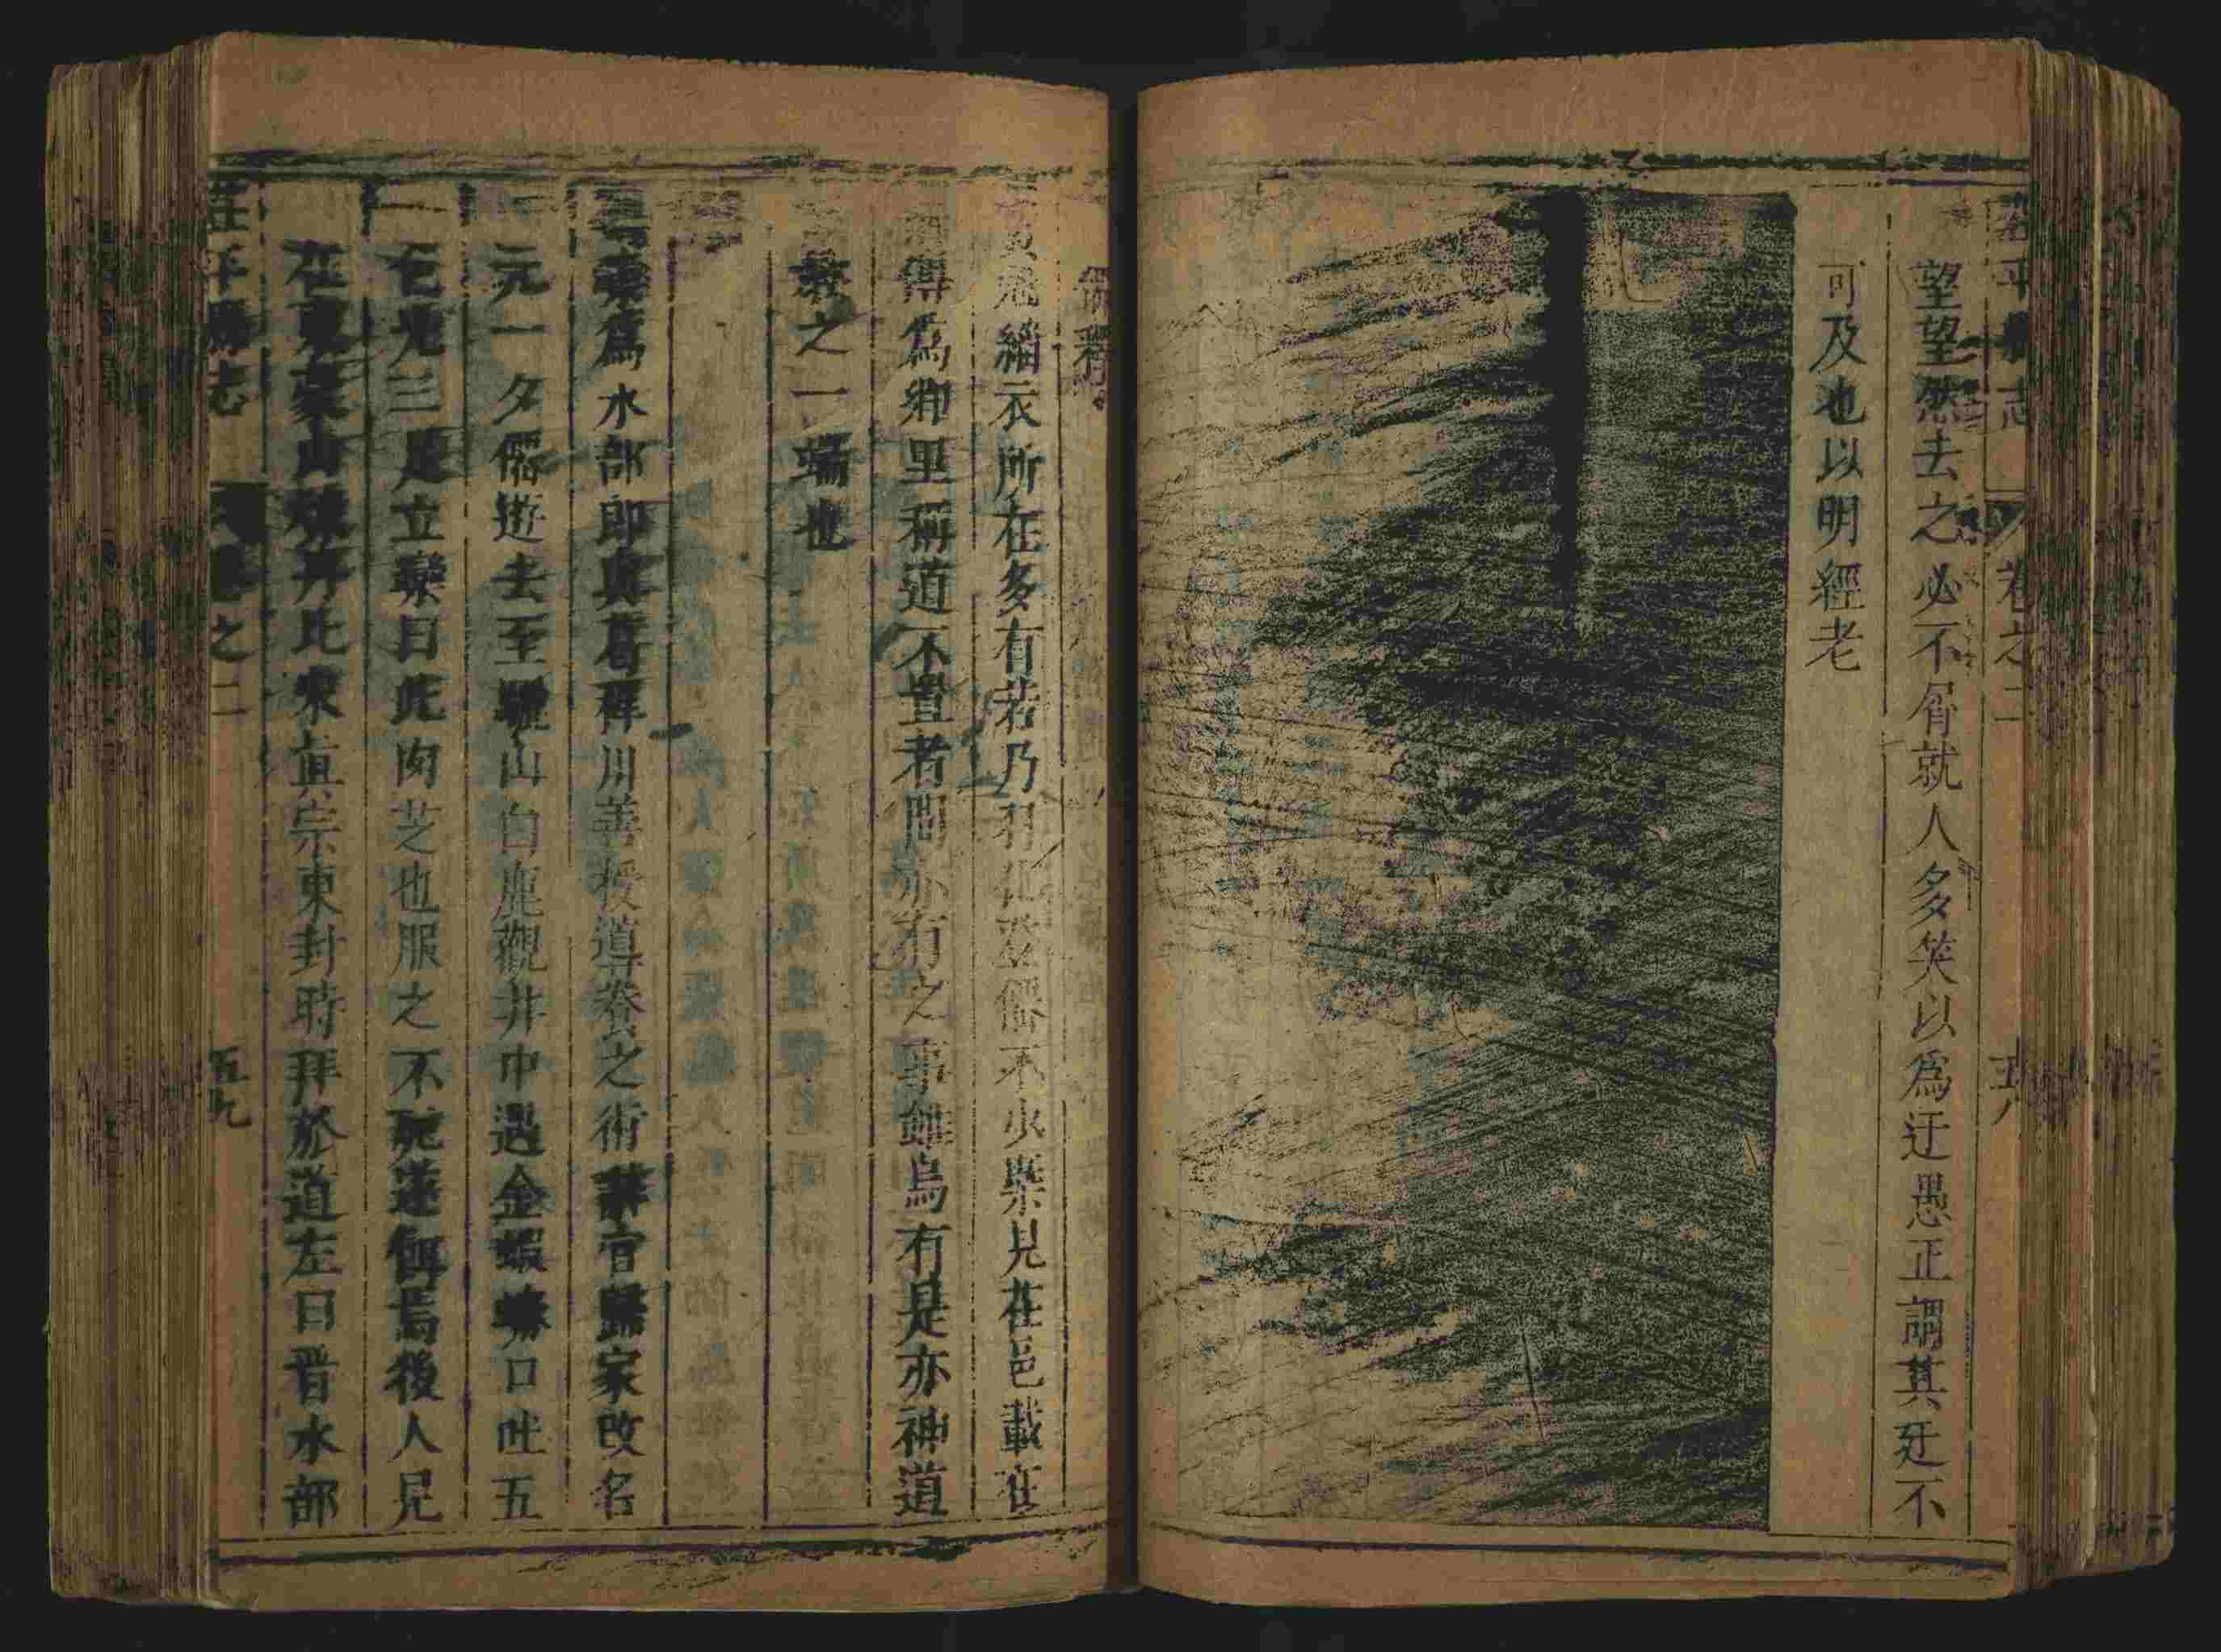 茌平縣志 卷之二 五八
望望然去之必不屑就人多笑以為迂愚正謂其迂不
可及也以明經老
仙釋
黃冠緇衣所在多有若乃羽化登僊不少槩見茌邑載在
傳為鄉里稱道不置者間亦有之事雖烏有是亦神道
教之一端也
為水部即真葛祥川善授道養之術辭官歸家改名
元一夕僊遊去至驪山白鹿觀井中遇金蝦蟆口吐五
色光三足立槩曰此肉芝也服之不死遂餌焉後人見
在東萊山煉丹比宋真宗東封時拜於道左曰晋水部
茌平縣志 卷之二 五九